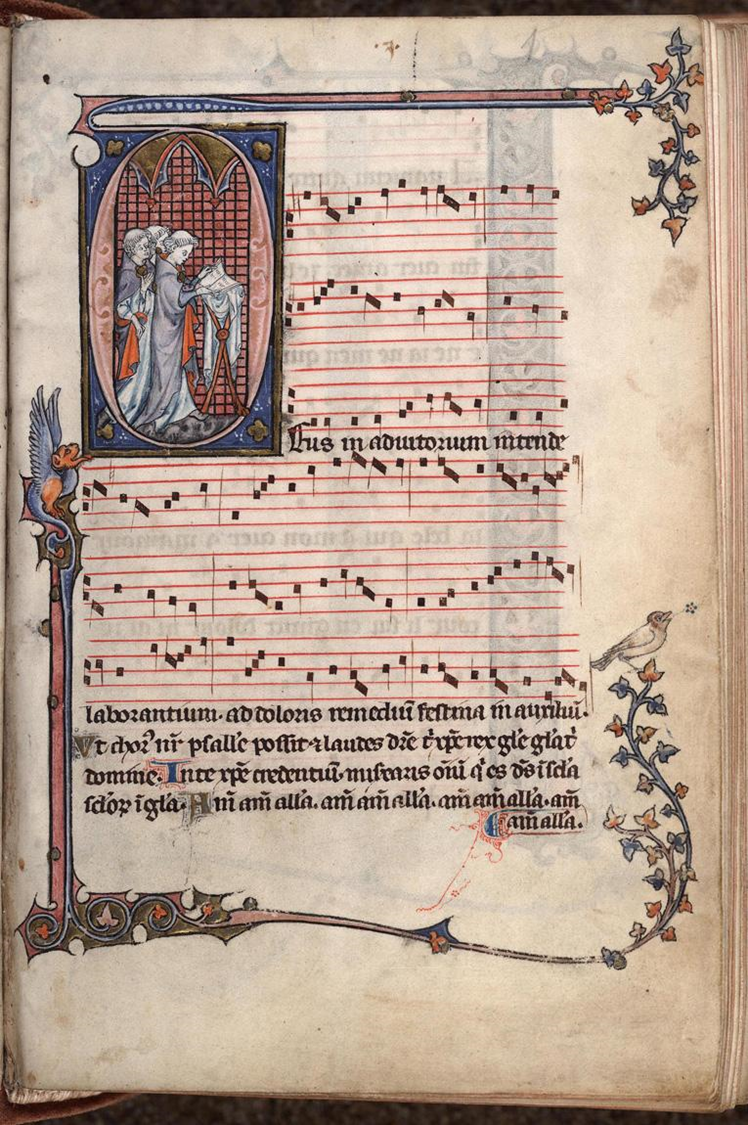 Deus in adiutorium intende
laborantium. ad doloris remediū festina in auxiliū.
Vt chorꝰ nr̄ psall'e possit ⁊ laudes dr̄e t̄ xp̄e rex gl'e gl'a t'
domine. In te xp̄e credentiū. misearis om̄ī q̄ es d̄s ī sc̄la
sc̄loꝝ ī gl'a. Am̄ am̄ all'a. am̄ am̄ all'a. am̄ am̄ all'a. am̄
am̄ all'a.